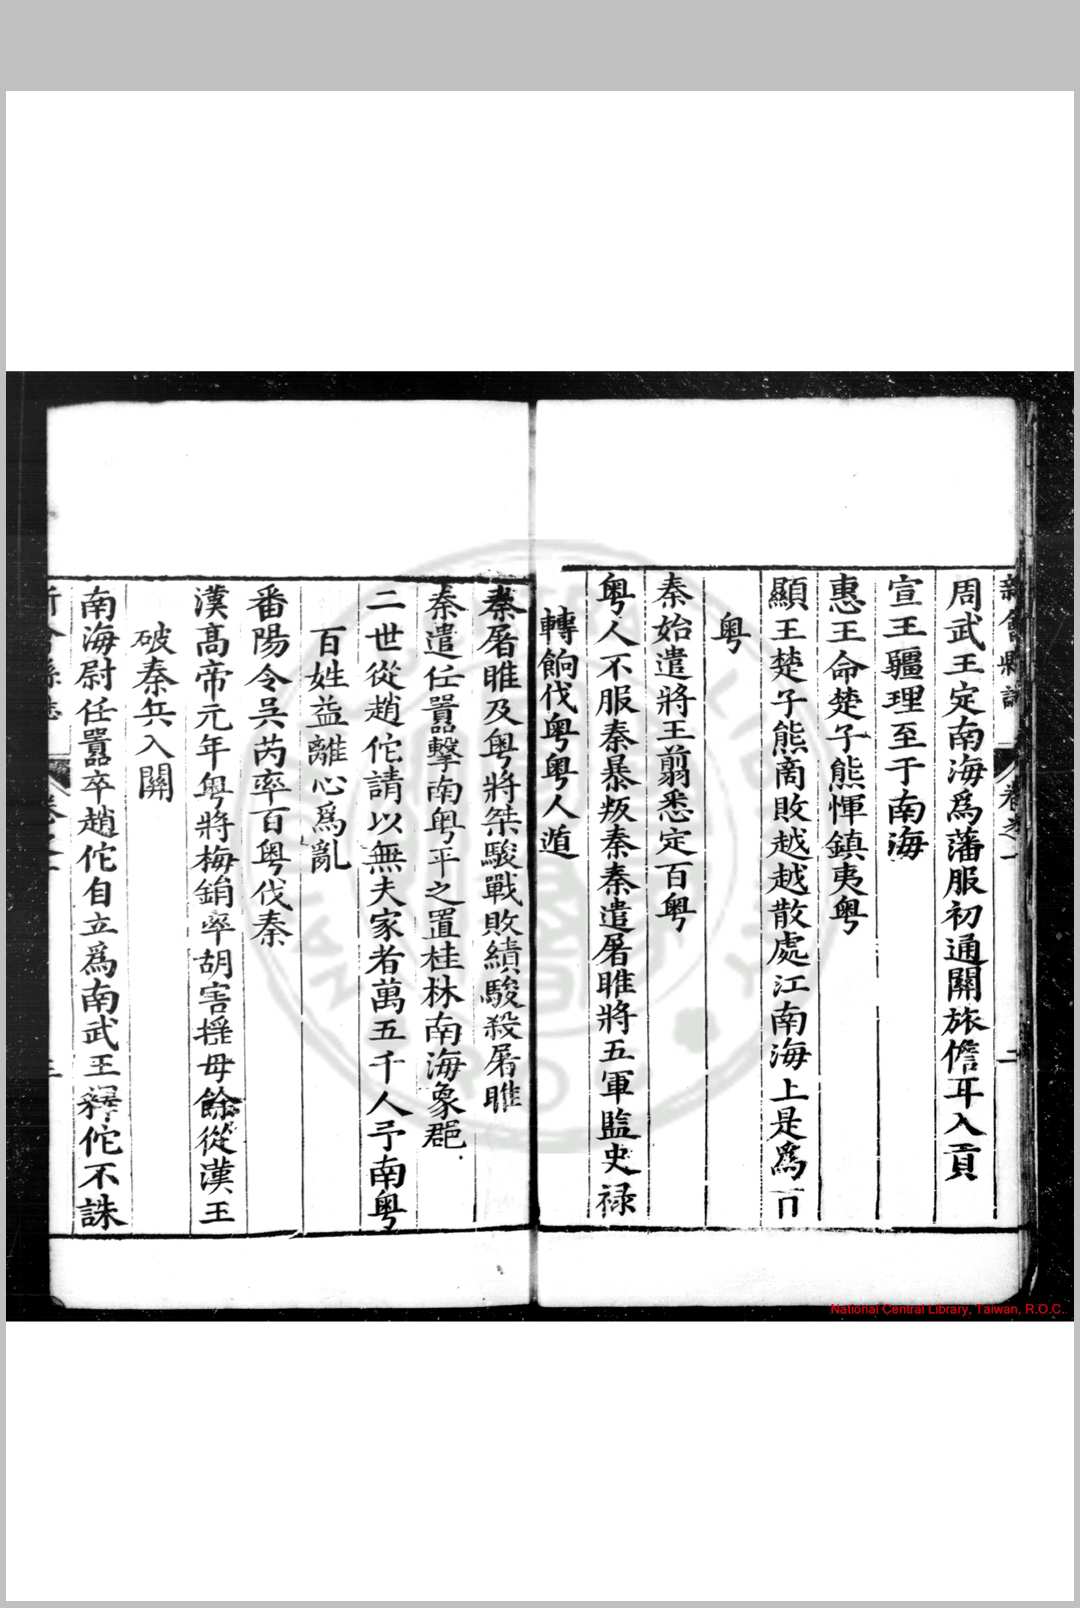 新會縣誌 卷之一 二
周武王定南海爲藩服初通關旅儋耳入貢
宣王疆理至于南海
惠王命楚子熊惲鎮夷粤
顯王楚子熊商敗越越散處江南海上是爲百
粤
秦始遣將王翦悉定百粤
粤人不服秦暴叛秦秦遣屠睢將五軍監史禄
轉餉伐粤粤人遁
秦屠睢及粤將桀駿戰敗績駿殺屠睢
秦遣任囂擊南粤平之置桂林南海象郡
二世從趙佗請以無夫家者萬五千人予南粤
百姓益離心爲亂
番陽令吴芮率百粤伐秦
漢高帝元年粤將梅鋗率胡害摇毋餘從漢王
破秦兵入關
南海尉任囂卒趙佗自立爲南武王釋佗不誅
新會縣誌 卷之一 三
National Central Library, Taiwan, R.O.C.